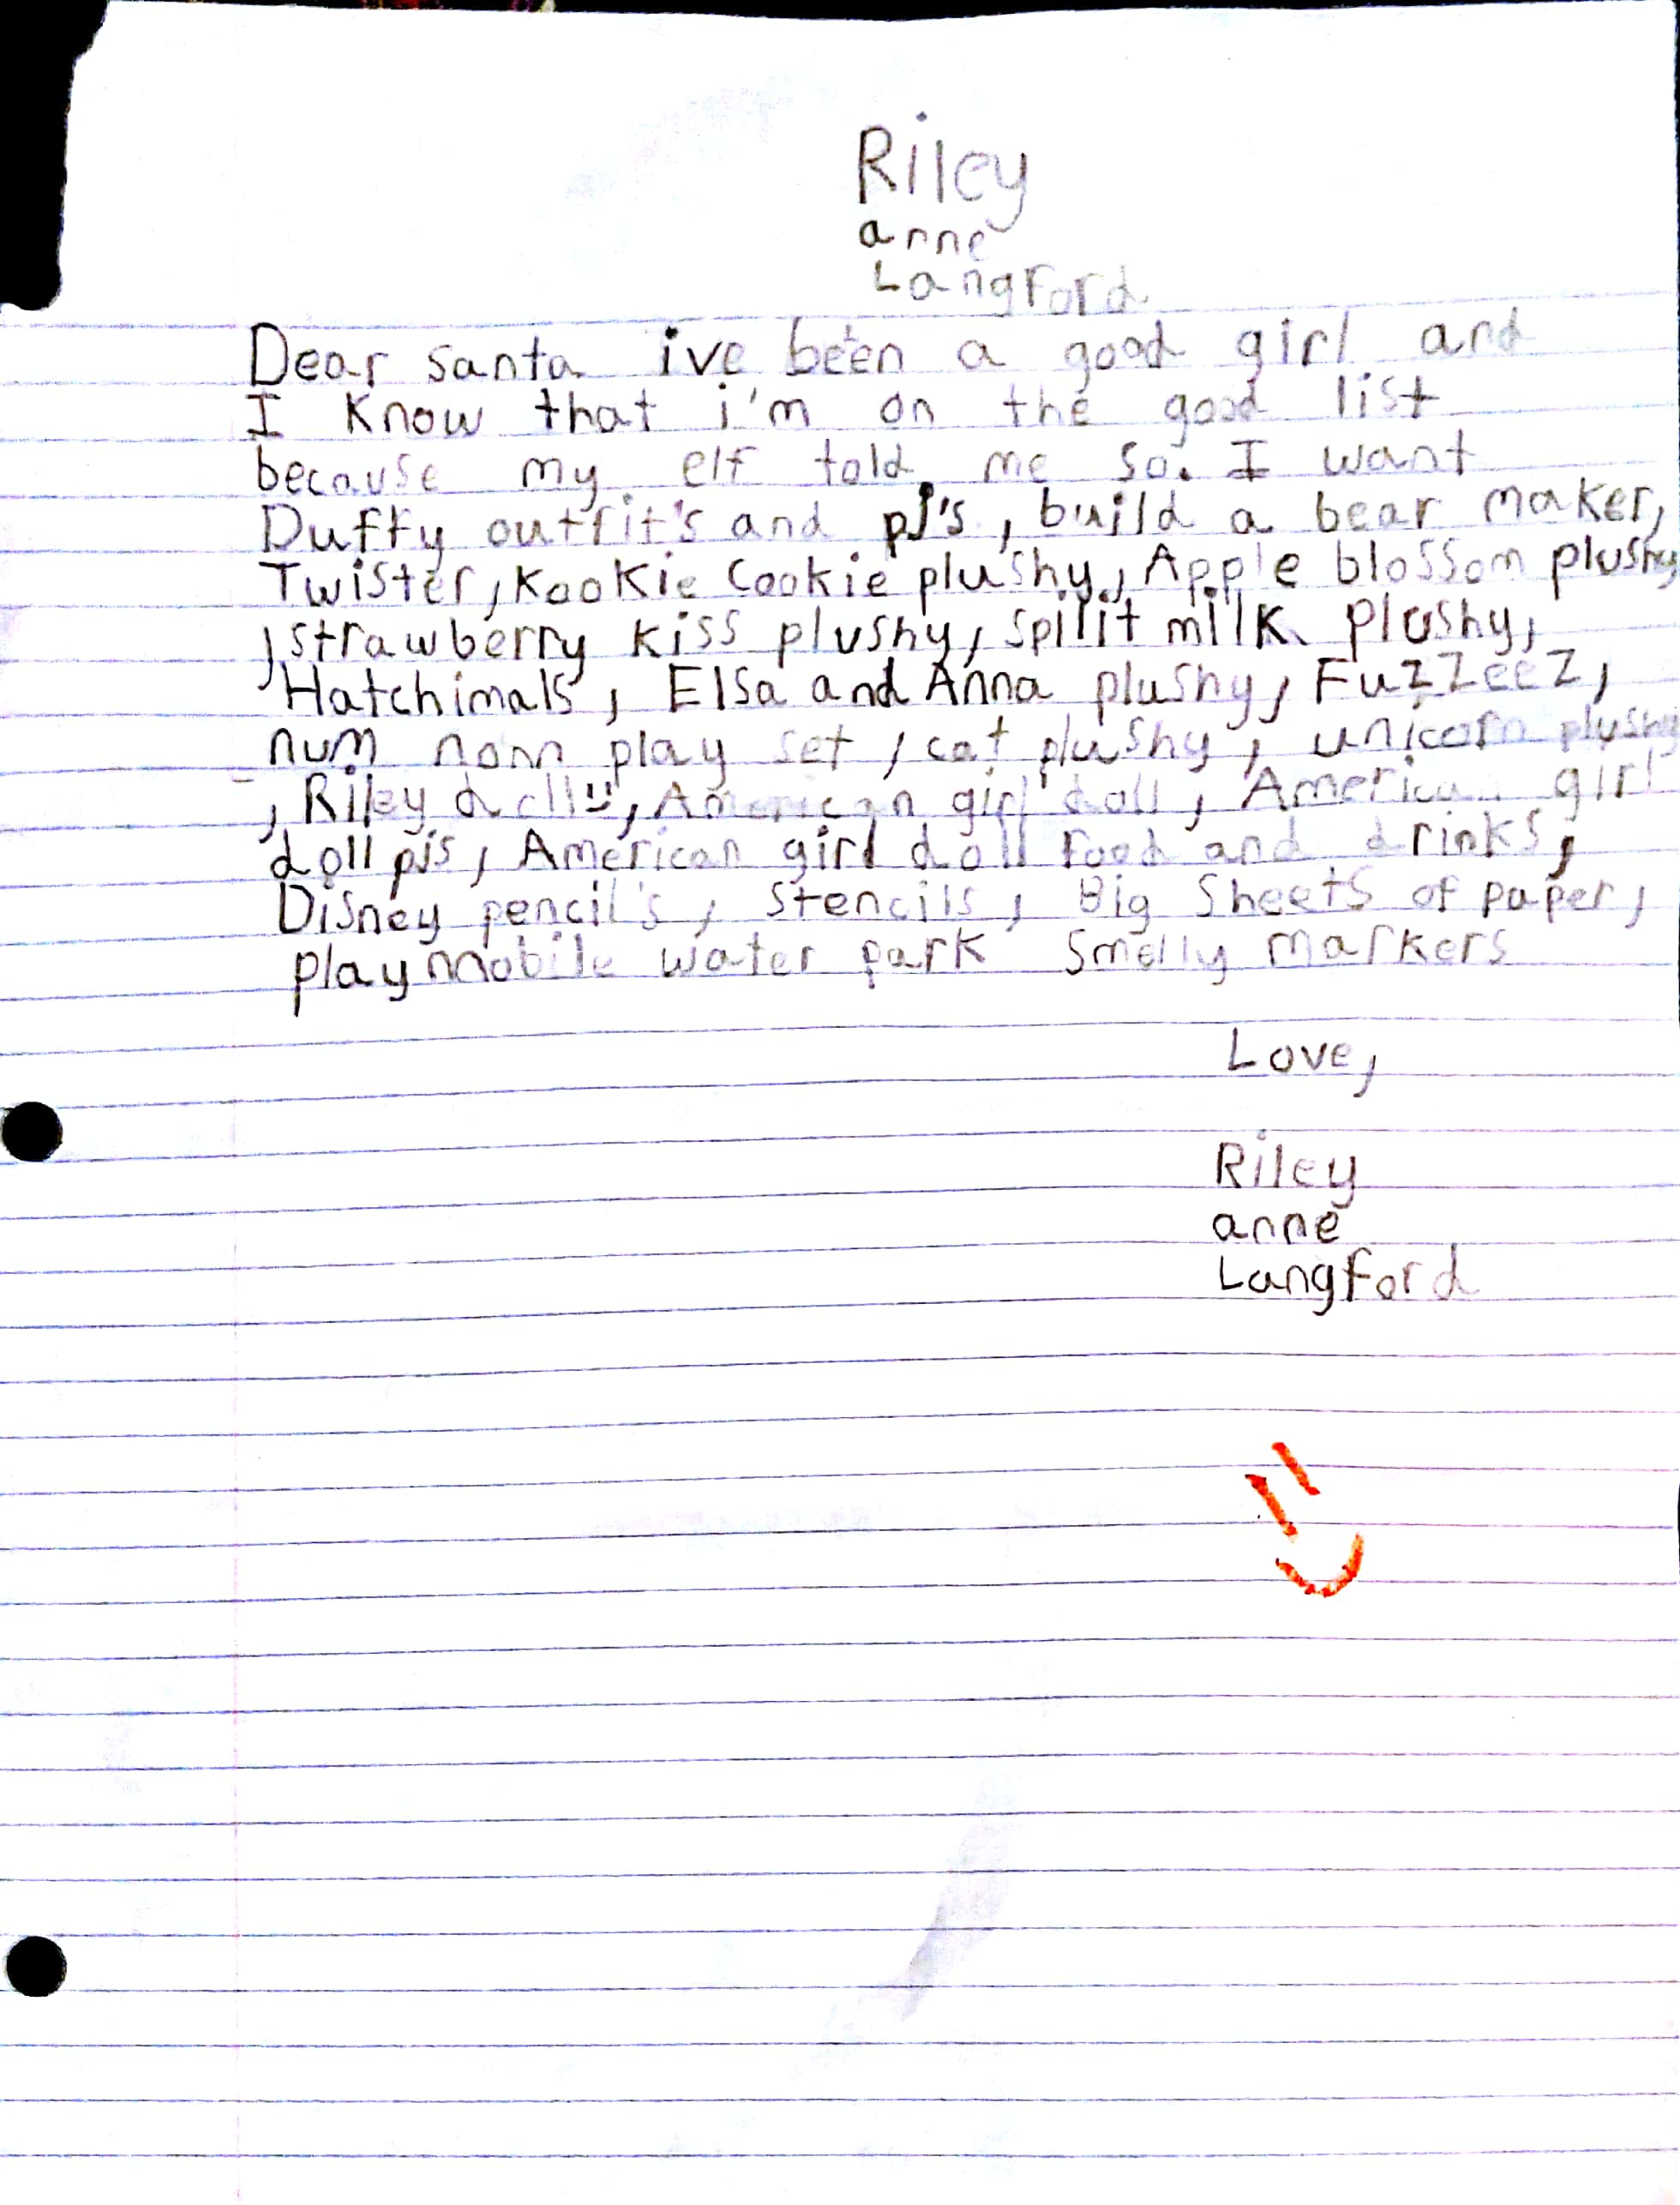 Riley
anne
Langford
Dear santa ive been a good girl and
I Know that i'm on the good list
because my elf told me so. I want
Duffy outfit's and pJ's, build a bear maker,
Twister, Kookie Cookie plushy, Apple blossom plushy
, strawberry kiss plushy, spilit milk plushy,
Hatchimals, Elsa and Anna plushy, FuzzeeZ,
num nom play set, cat plushy, unicorn plushy
, Riley doll, American girl doll, America girl
doll pjs, American girl doll food and drinks,
Disney pencil's, Stencils, Big Sheets of paper,
playmobile water park Smelly markers
Love,
Riley
anne
Langford